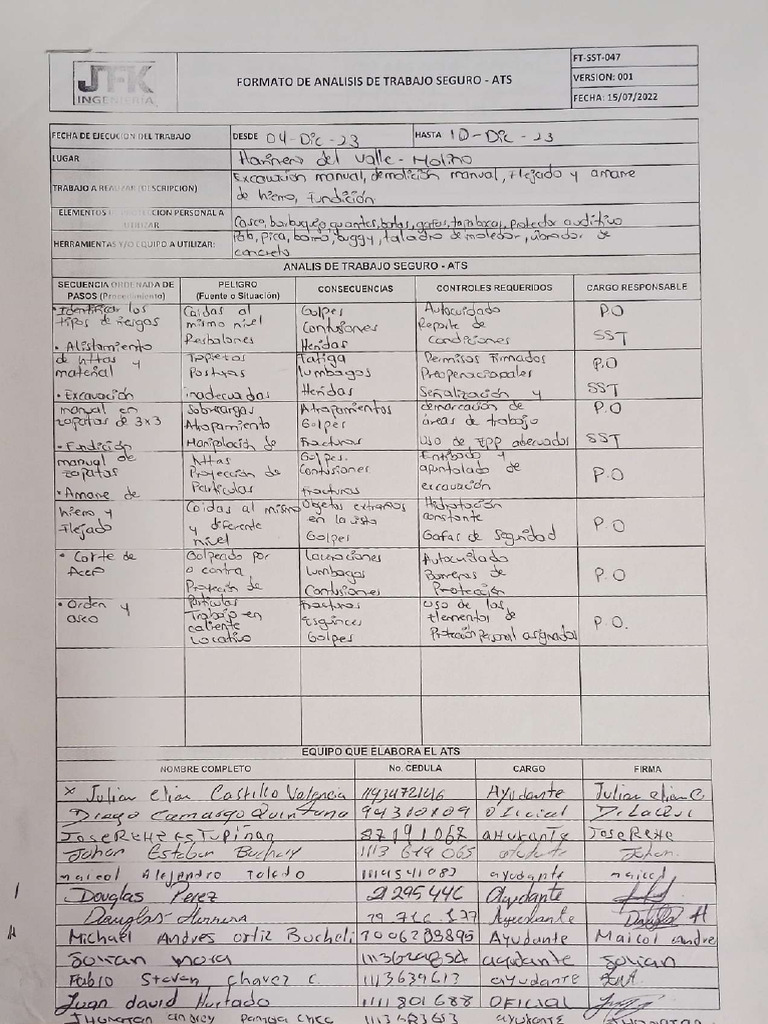 JFK
INGENIERIA
FORMATO DE ANALISIS DE TRABAJO SEGURO - ATS
FT-SST-047
VERSION: 001
FECHA: 15/07/2022
FECHA DE EJECUCION DEL TRABAJO DESDE 04-Dic-23 HASTA 10-Dic-23
LUGAR Harinera del Valle - Molino
TRABAJO A REALIZAR (DESCRIPCION) Excavación manual, demolición manual, Flejado y amarre
de hierro, Fundición
ELEMENTOS DE PROTECCION PERSONAL A UTILIZAR Casco, barbuquejo, guantes, botas, gafas, tapabocas, protector auditivo
HERRAMIENTAS Y/O EQUIPO A UTILIZAR: pica, barra, buggy, taladro demoledor, vibrador de
concreto
ANALIS DE TRABAJO SEGURO - ATS
SECUENCIA ORDENADA DE PASOS (Procedimiento) PELIGRO (Fuente o Situación) CONSECUENCIAS CONTROLES REQUERIDOS CARGO RESPONSABLE
• Identificar los Caidas al Golpes Autocuidado P.O
tipos de riesgos mismo nivel Contusiones Reporte de
Resbalones Heridas condiciones SST
• Alistamiento
de httas y Tropiezos Fatiga Permisos Firmados P.O
material Posturas lumbagos Preoperacionales
• Excavación inadecuadas Heridas Señalización y SST
manual en Sobrecargas Atrapamientos demarcación de P.O
zapatas de 3x3 Atrapamiento Golpes áreas de trabajo
• Fundición Manipilación de Fracturas Uso de EPP adecuados SST
manual de httas Golpes. Entibado y
zapatas Proyección de Contusiones apuntalado de P.O
• Amarre de Particulas fracturas excavación
hierro y Caidas al mismo Objetos extraños Hidratación
Flejado y diferente en la vista constante P.O
nivel Golpes Gafas de Seguridad
• Corte de Golpeado por Laceraciones Autocuidado
Acero o contra Lumbagos Barreras de P.O
Proteción de Contusiones Protección
• Orden y Particulas Fracturas Uso de los
aseo Trabajo en Esguinces elementos de P.O.
caliente Golpes Protección personal asignados
Locativo
EQUIPO QUE ELABORA EL ATS
NOMBRE COMPLETO No. CEDULA CARGO FIRMA
x Julian elian Castillo Valencia Ayudante Julian elian C
Diego Camargo Quintana 94310109 oficial
Jose Rene Estupiñan ayukante Jose Rene
Johan Esteban Buchely 1113 679 065 Johan.
maicol Alejandro Toledo ayudante maicol
Douglas Perez 21295446 Ayudante
Douglas Herrera Ayudante H
Michael Andres Ortiz Bucheli 1006288895 Ayudante Maicol Andre
ayudante
Fabio Steven Chavez C. 1113639613 ayudante
Juan david Hurtado 1111801688 OFICIAL